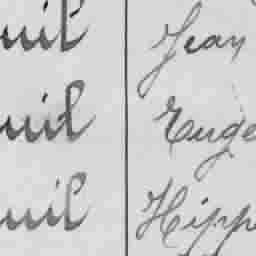 uil Jean
uil Euge
uil Hipp